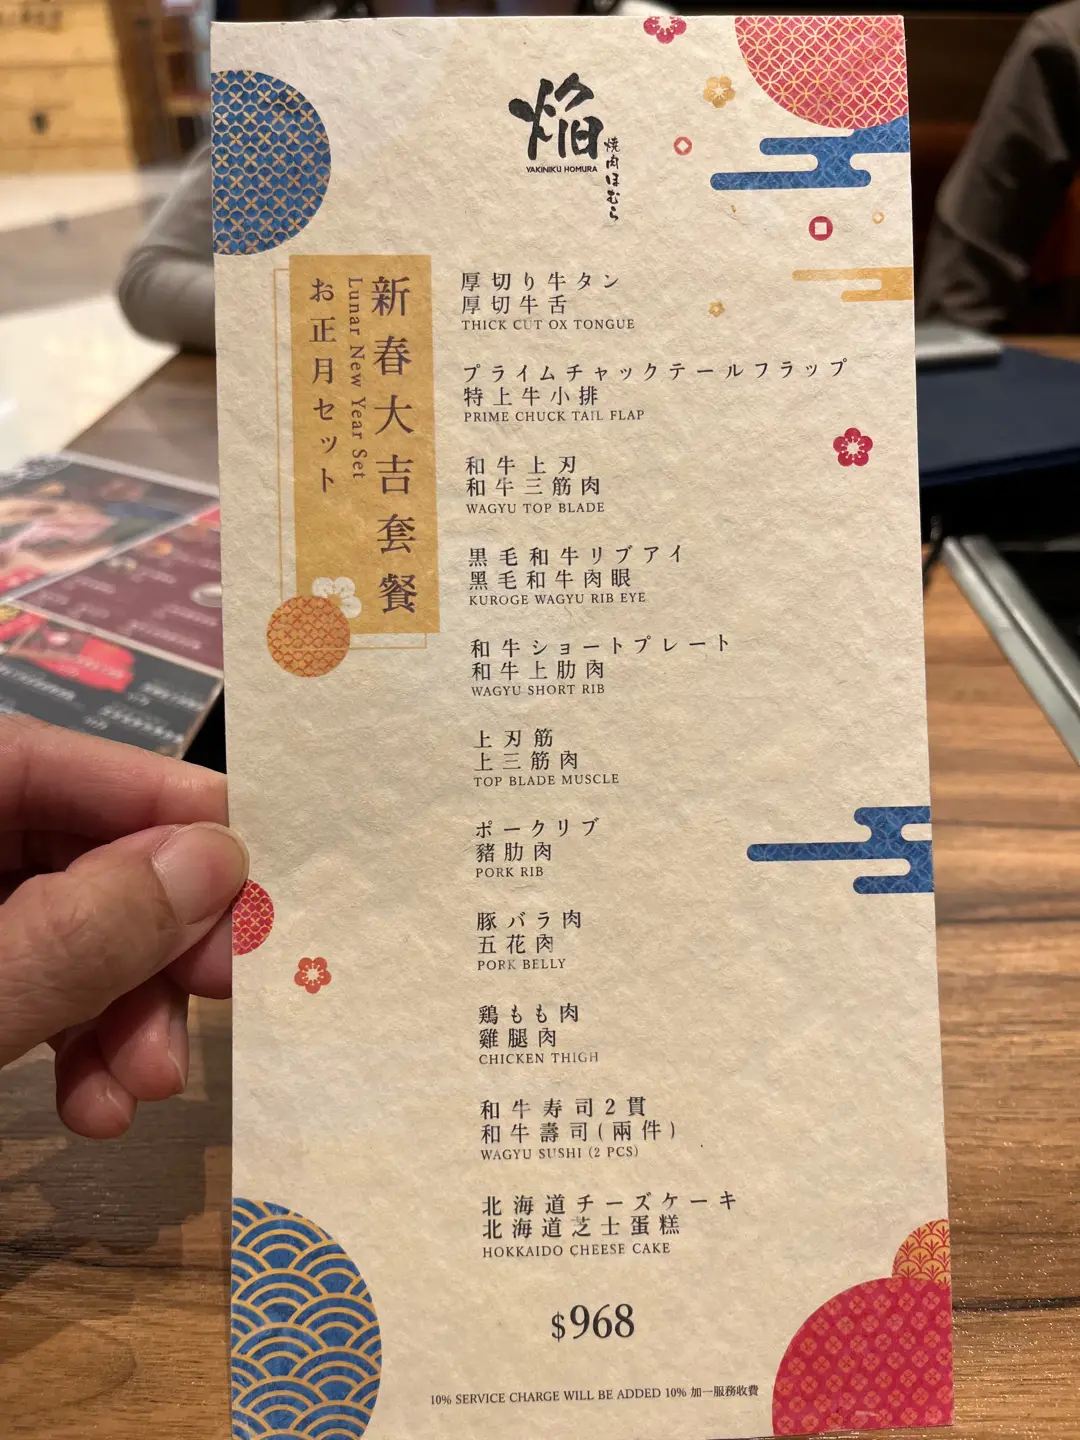 焔
YAKINIKU HOMURA
焼肉ほむら
新春大吉套餐
Lunar New Year Set
お正月セット
厚切り牛タン
厚切牛舌
THICK CUT OX TONGUE
プライムチャックテールフラップ
特上牛小排
PRIME CHUCK TAIL FLAP
和牛上刃
和牛三筋肉
WAGYU TOP BLADE
黒毛和牛リブアイ
黑毛和牛肉眼
KUROGE WAGYU RIB EYE
和牛ショートプレート
和牛上肋肉
WAGYU SHORT RIB
上刃筋
上三筋肉
TOP BLADE MUSCLE
ポークリブ
豬肋肉
PORK RIB
豚バラ肉
五花肉
PORK BELLY
鶏もも肉
雞腿肉
CHICKEN THIGH
和牛寿司2貫
和牛壽司(兩件)
WAGYU SUSHI (2 PCS)
北海道チーズケーキ
北海道芝士蛋糕
HOKKAIDO CHEESE CAKE
$968
10% SERVICE CHARGE WILL BE ADDED 10% 加一服務收費